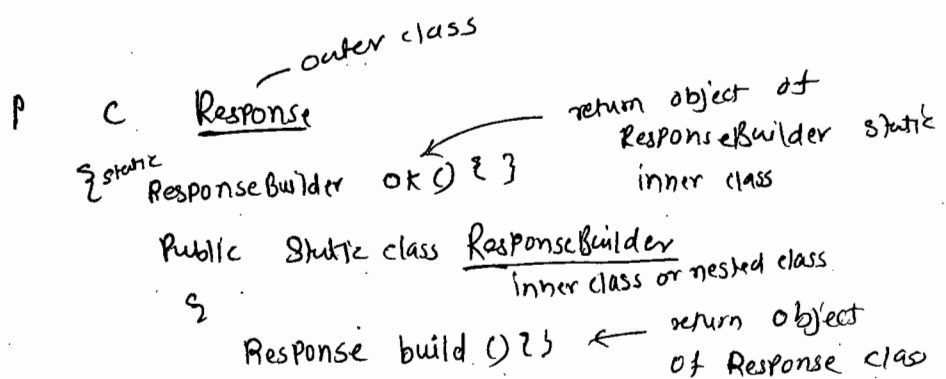 outer class
P C Response
return object of
ResponseBuilder static
inner class
{ static
ResponseBuilder ok() { }
Public Static class ResponseBuilder
inner class or nested class
{
Response build () { }
return object
of Response class